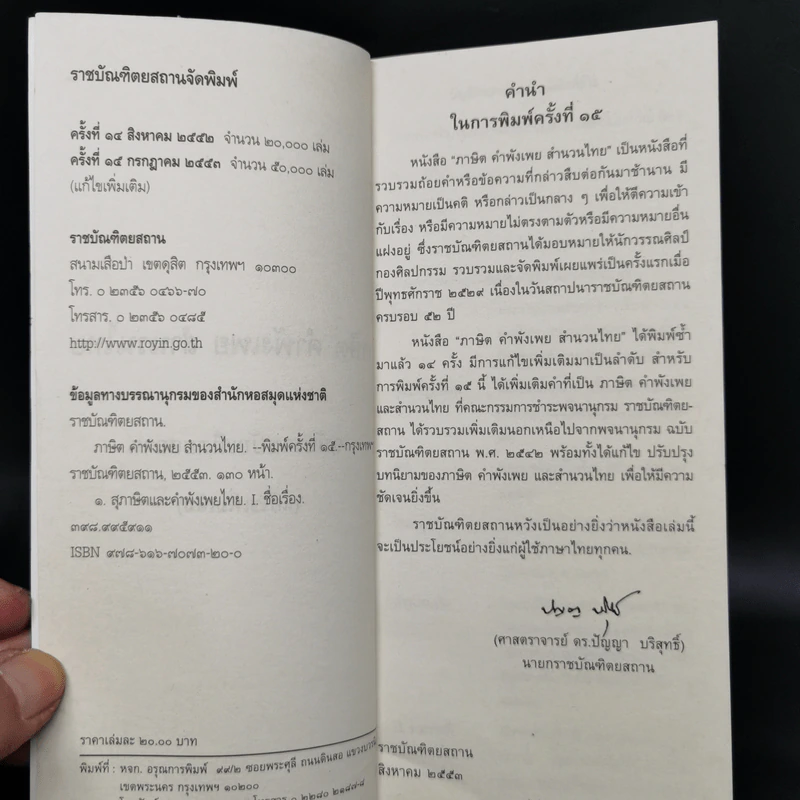 ราชบัณฑิตยสถานจัดพิมพ์
ครั้งที่ ๑๔ สิงหาคม ๒๕๕๒ จำนวน ๒๐,๐๐๐ เล่ม
ครั้งที่ ๑๕ กรกฎาคม ๒๕๕๓ จำนวน ๕๐,๐๐๐ เล่ม
(แก้ไขเพิ่มเติม)
ราชบัณฑิตยสถาน
สนามเสือป่า เขตดุสิต กรุงเทพฯ ๑๐๓๐๐
โทร. ๐ ๒๓๕๖ ๐๔๖๖-๗๐
โทรสาร. ๐ ๒๓๕๖ ๐๔๘๕
http://www.royin.go.th
ข้อมูลทางบรรณานุกรมของสำนักหอสมุดแห่งชาติ
ราชบัณฑิตยสถาน.
ภาษิต คำพังเพย สำนวนไทย. --พิมพ์ครั้งที่ ๑๕.--กรุงเทพฯ
ราชบัณฑิตยสถาน, ๒๕๕๓. ๑๓๐ หน้า.
๑. สุภาษิตและคำพังเพยไทย. I. ชื่อเรื่อง.
๓๙๘.๙๙๕๙๑๑
ISBN ๙๗๘-๖๑๖-๗๐๗๓-๒๐-๐
ราคาเล่มละ ๒๐.๐๐ บาท
พิมพ์ที่ : หจก. อรุณการพิมพ์ ๙๙/๒ ซอยพระศุลี ถนนดินสอ แขวงบวรนิ
เขตพระนคร กรุงเทพฯ ๑๐๒๐๐
โทรสาร ๐ ๒๒๘๐ ๒๑๘๗-๘
คำนำ
ในการพิมพ์ครั้งที่ ๑๕
หนังสือ "ภาษิต คำพังเพย สำนวนไทย" เป็นหนังสือที่
รวบรวมถ้อยคำหรือข้อความที่กล่าวสืบต่อกันมาช้านาน มี
ความหมายเป็นคติ หรือกล่าวเป็นกลาง ๆ เพื่อให้ตีความเข้า
กับเรื่อง หรือมีความหมายไม่ตรงตามตัวหรือมีความหมายอื่น
แฝงอยู่ ซึ่งราชบัณฑิตยสถานได้มอบหมายให้นักวรรณศิลป์
กองศิลปกรรม รวบรวมและจัดพิมพ์เผยแพร่เป็นครั้งแรกเมื่อ
ปีพุทธศักราช ๒๕๒๙ เนื่องในวันสถาปนาราชบัณฑิตยสถาน
ครบรอบ ๕๒ ปี
หนังสือ "ภาษิต คำพังเพย สำนวนไทย" ได้พิมพ์ซ้ำ
มาแล้ว ๑๔ ครั้ง มีการแก้ไขเพิ่มเติมมาเป็นลำดับ สำหรับ
การพิมพ์ครั้งที่ ๑๕ นี้ ได้เพิ่มเติมคำที่เป็น ภาษิต คำพังเพย
และสำนวนไทย ที่คณะกรรมการชำระพจนานุกรม ราชบัณฑิตย-
สถาน ได้รวบรวมเพิ่มเติมนอกเหนือไปจากพจนานุกรม ฉบับ
ราชบัณฑิตยสถาน พ.ศ. ๒๕๔๒ พร้อมทั้งได้แก้ไข ปรับปรุง
บทนิยามของภาษิต คำพังเพย และสำนวนไทย เพื่อให้มีความ
ชัดเจนยิ่งขึ้น
ราชบัณฑิตยสถานหวังเป็นอย่างยิ่งว่าหนังสือเล่มนี้
จะเป็นประโยชน์อย่างยิ่งแก่ผู้ใช้ภาษาไทยทุกคน.
(ศาสตราจารย์ ดร.ปัญญา บริสุทธิ์)
นายกราชบัณฑิตยสถาน
ราชบัณฑิตยสถาน
สิงหาคม ๒๕๕๓